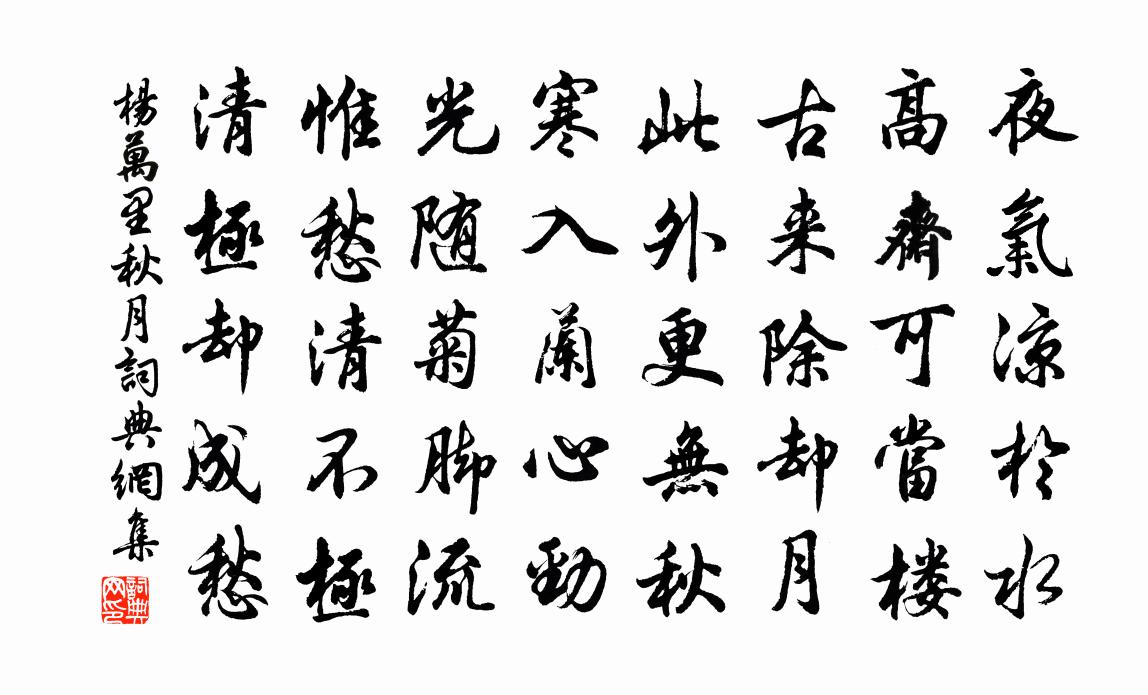 夜氣涼於水
高齋可當楼
古来除却月
此外更無秋
寒入蘭心勁
光随菊脚流
惟愁清不極
清極却成愁
楊萬里秋月詞典網集
詞典网印